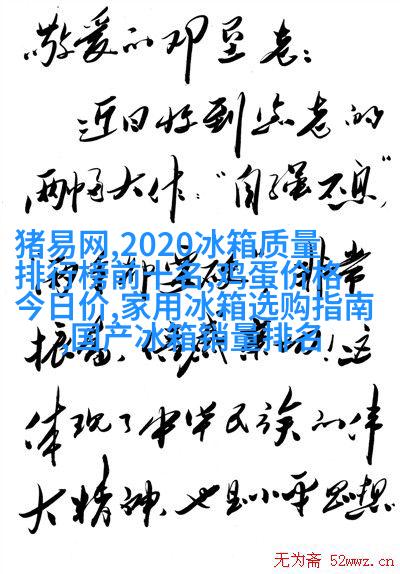 敬爱的邓垦老：
近日收到您老的
两幅大作：“自强不息”
猪易网,2020冰箱质量
排行榜前十名,鸡蛋价格
今日价,家用冰箱选购指南
,国产冰箱销量排名
非常
振奋、倍感！这
体现了中华民族的伟
大精神，也是小平思想
无为斋 52wwz.cn